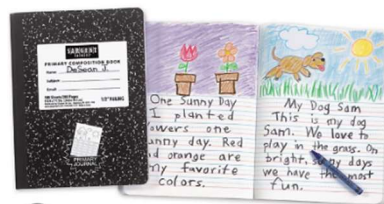 SARGENT
PRIMARY COMPOSITION BOOK
Name: DeSean J.
Subject:
Email:
100 Sheets/200 Pages
1/2" RULING
PRIMARY
JOURNAL
One Sunny Day
I planted
owers one
unny day. Red
nd orange are
my favorite
colors.
My Dog Sam
This is my dog
Sam. We love to
play in the grass. On
bright, s ny days
we have the most
fun.